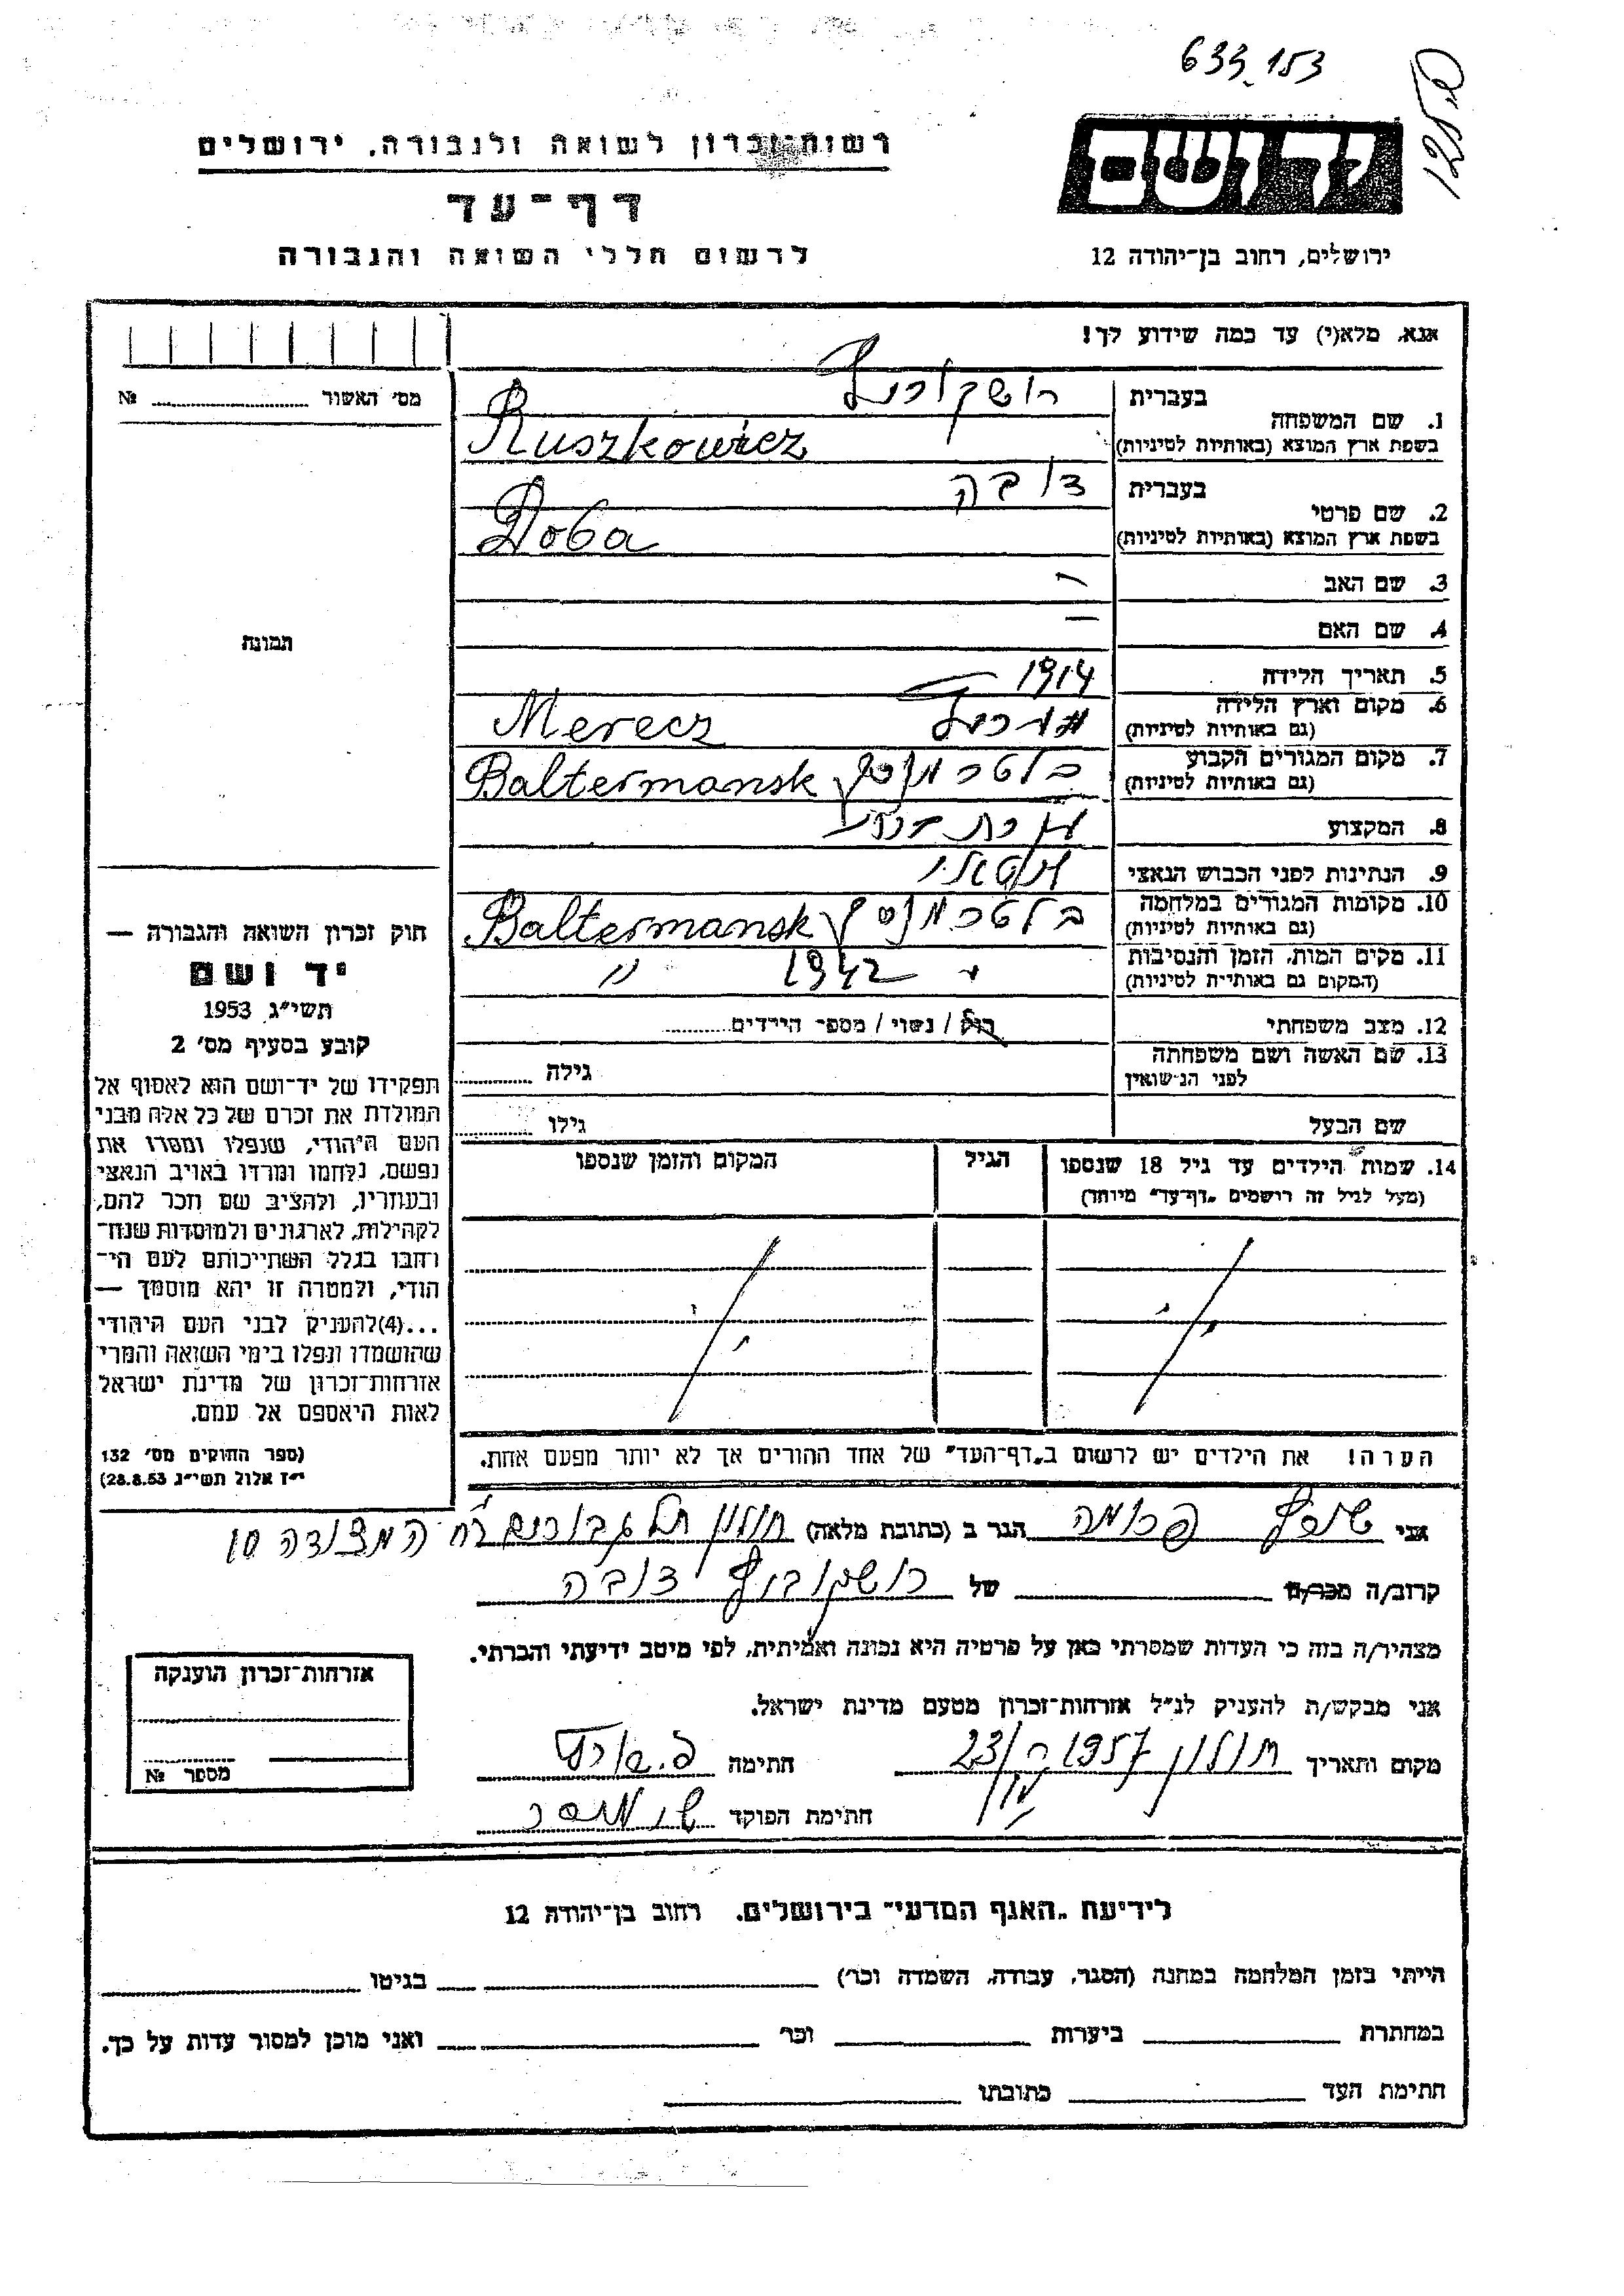 633-153
רשות-זכרון לשואה ולגבורה, ירושלים
דף-עד
לרשום חללי השואה והגבורה
ירושלים, רחוב בן-יהודה 12
אנא, מלא(י) עד כמה שידוע לך!
מס' האשור № 
1. שם המשפחה
בעברית
בשפת ארץ המוצא (באותיות לטיניות)
Ruszkowicz
2. שם פרטי
בעברית דובה
בשפת ארץ המוצא (באותיות לטיניות)
Doba
3. שם האב –
4. שם האם –
תמונה
5. תאריך הלידה 1914
6. מקום וארץ הלידה
(גם באותיות לטיניות) Merecz
7. מקום המגורים הקבוע
(גם באותיות לטיניות) Baltermansk
8. המקצוע
9. הנתינות לפני הכבוש הנאצי
10. מקומות המגורים במלחמה
(גם באותיות לטיניות) Baltermansk
11. מקום המות, הזמן והנסיבות
(המקום גם באותיות לטיניות) 1942 "
12. מצב משפחתי רווק / נשוי / מספר הילדים
13. שם האשה ושם משפחתה
לפני הנישואין גילה
שם הבעל גילו
14. שמות הילדים עד גיל 18 שנספו הגיל המקום והזמן שנספו
(מעל לגיל זה רושמים "דף-עד" מיוחד)
הערה! את הילדים יש לרשום ב"דף-העד" של אחד ההורים אך לא יותר מפעם אחת.
חוק זכרון השואה והגבורה —
יד ושם
תשי"ג 1953
קובע בסעיף מס' 2
תפקידו של יד-ושם הוא לאסוף אל
המולדת את זכרם של כל אלה מבני
העם היהודי, שנפלו ומסרו את
נפשם, נלחמו ומרדו באויב הנאצי
ובעוזריו, ולהציב שם וזכר להם,
לקהילות, לארגונים ולמוסדות שנח-
רחבו בגלל השתייכותם לעם הי-
הודי, ולמטרה זו יהא מוסמך —
...(4)להעניק לבני העם היהודי
שהושמדו ונפלו בימי השואה והמרי
אזרחות-זכרון של מדינת ישראל
לאות היאספם אל עמם.
(ספר החוקים מס' 132
י"ז אלול תשי"ג 28.8.53)
אני הגר ב (כתובת מלאה) חולון תל גבורים רח' המצודה 10
קרוב/ה מכר/ה של רושקוביץ דובה
מצהיר/ה בזה כי העדות שמסרתי כאן על פרטיה היא נכונה ואמיתית, לפי מיטב ידיעתי והכרתי.
אני מבקש/ת להעניק לנ"ל אזרחות-זכרון מטעם מדינת ישראל.
מקום ותאריך חולון 1957 חתימה
חתימת הפוקד
אזרחות-זכרון הוענקה
מספר №
לידיעת "האגף המדעי" בירושלים, רחוב בן-יהודה 12
הייתי בזמן המלחמה במחנה (הסגר, עבודה, השמדה וכר') בגיטו
במחתרת ביערות וכר' ואני מוכן למסור עדות על כך.
חתימת העד כתובתו